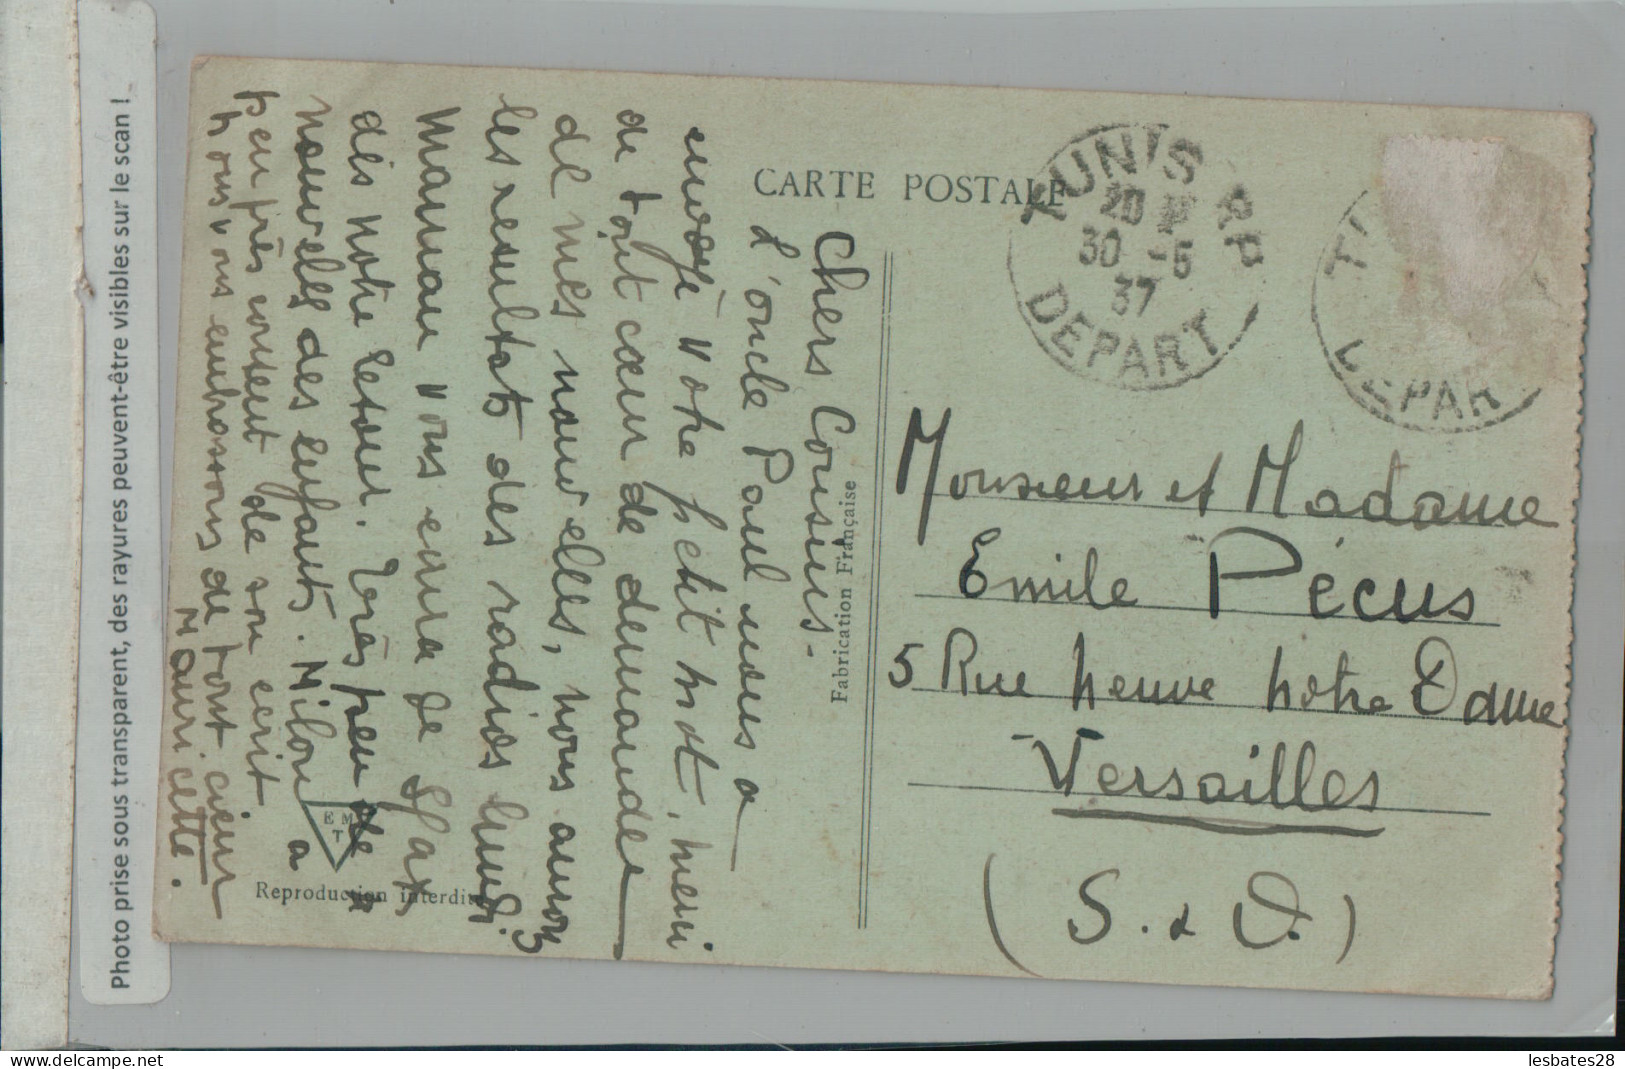 Photo prise sous transparent, des rayures peuvent-être visibles sur le scan !
CARTE POSTALE
TUNIS RP
20
30 -5
37
DEPART
DEPART
Chers Cousins.
L'oncle Paul nous a
envoyé votre petit mot, merci
de tout cœur de demander
de mes nouvelles, nous aurons
les resultats des radios lundi.
Maman vous ecrira de Sfax
dès notre retour. Très peu de
nouvelles des enfants. Milou a
peu près content de son ecrit
nous vous embrassons de tout cœur
Mauricette.
Fabrication Française
Monsieur et Madame
Emile Pécus
5 Rue neuve notre Dame
Versailles
(S. & O.)
E M
T
Reproduction interdite
lesbates28